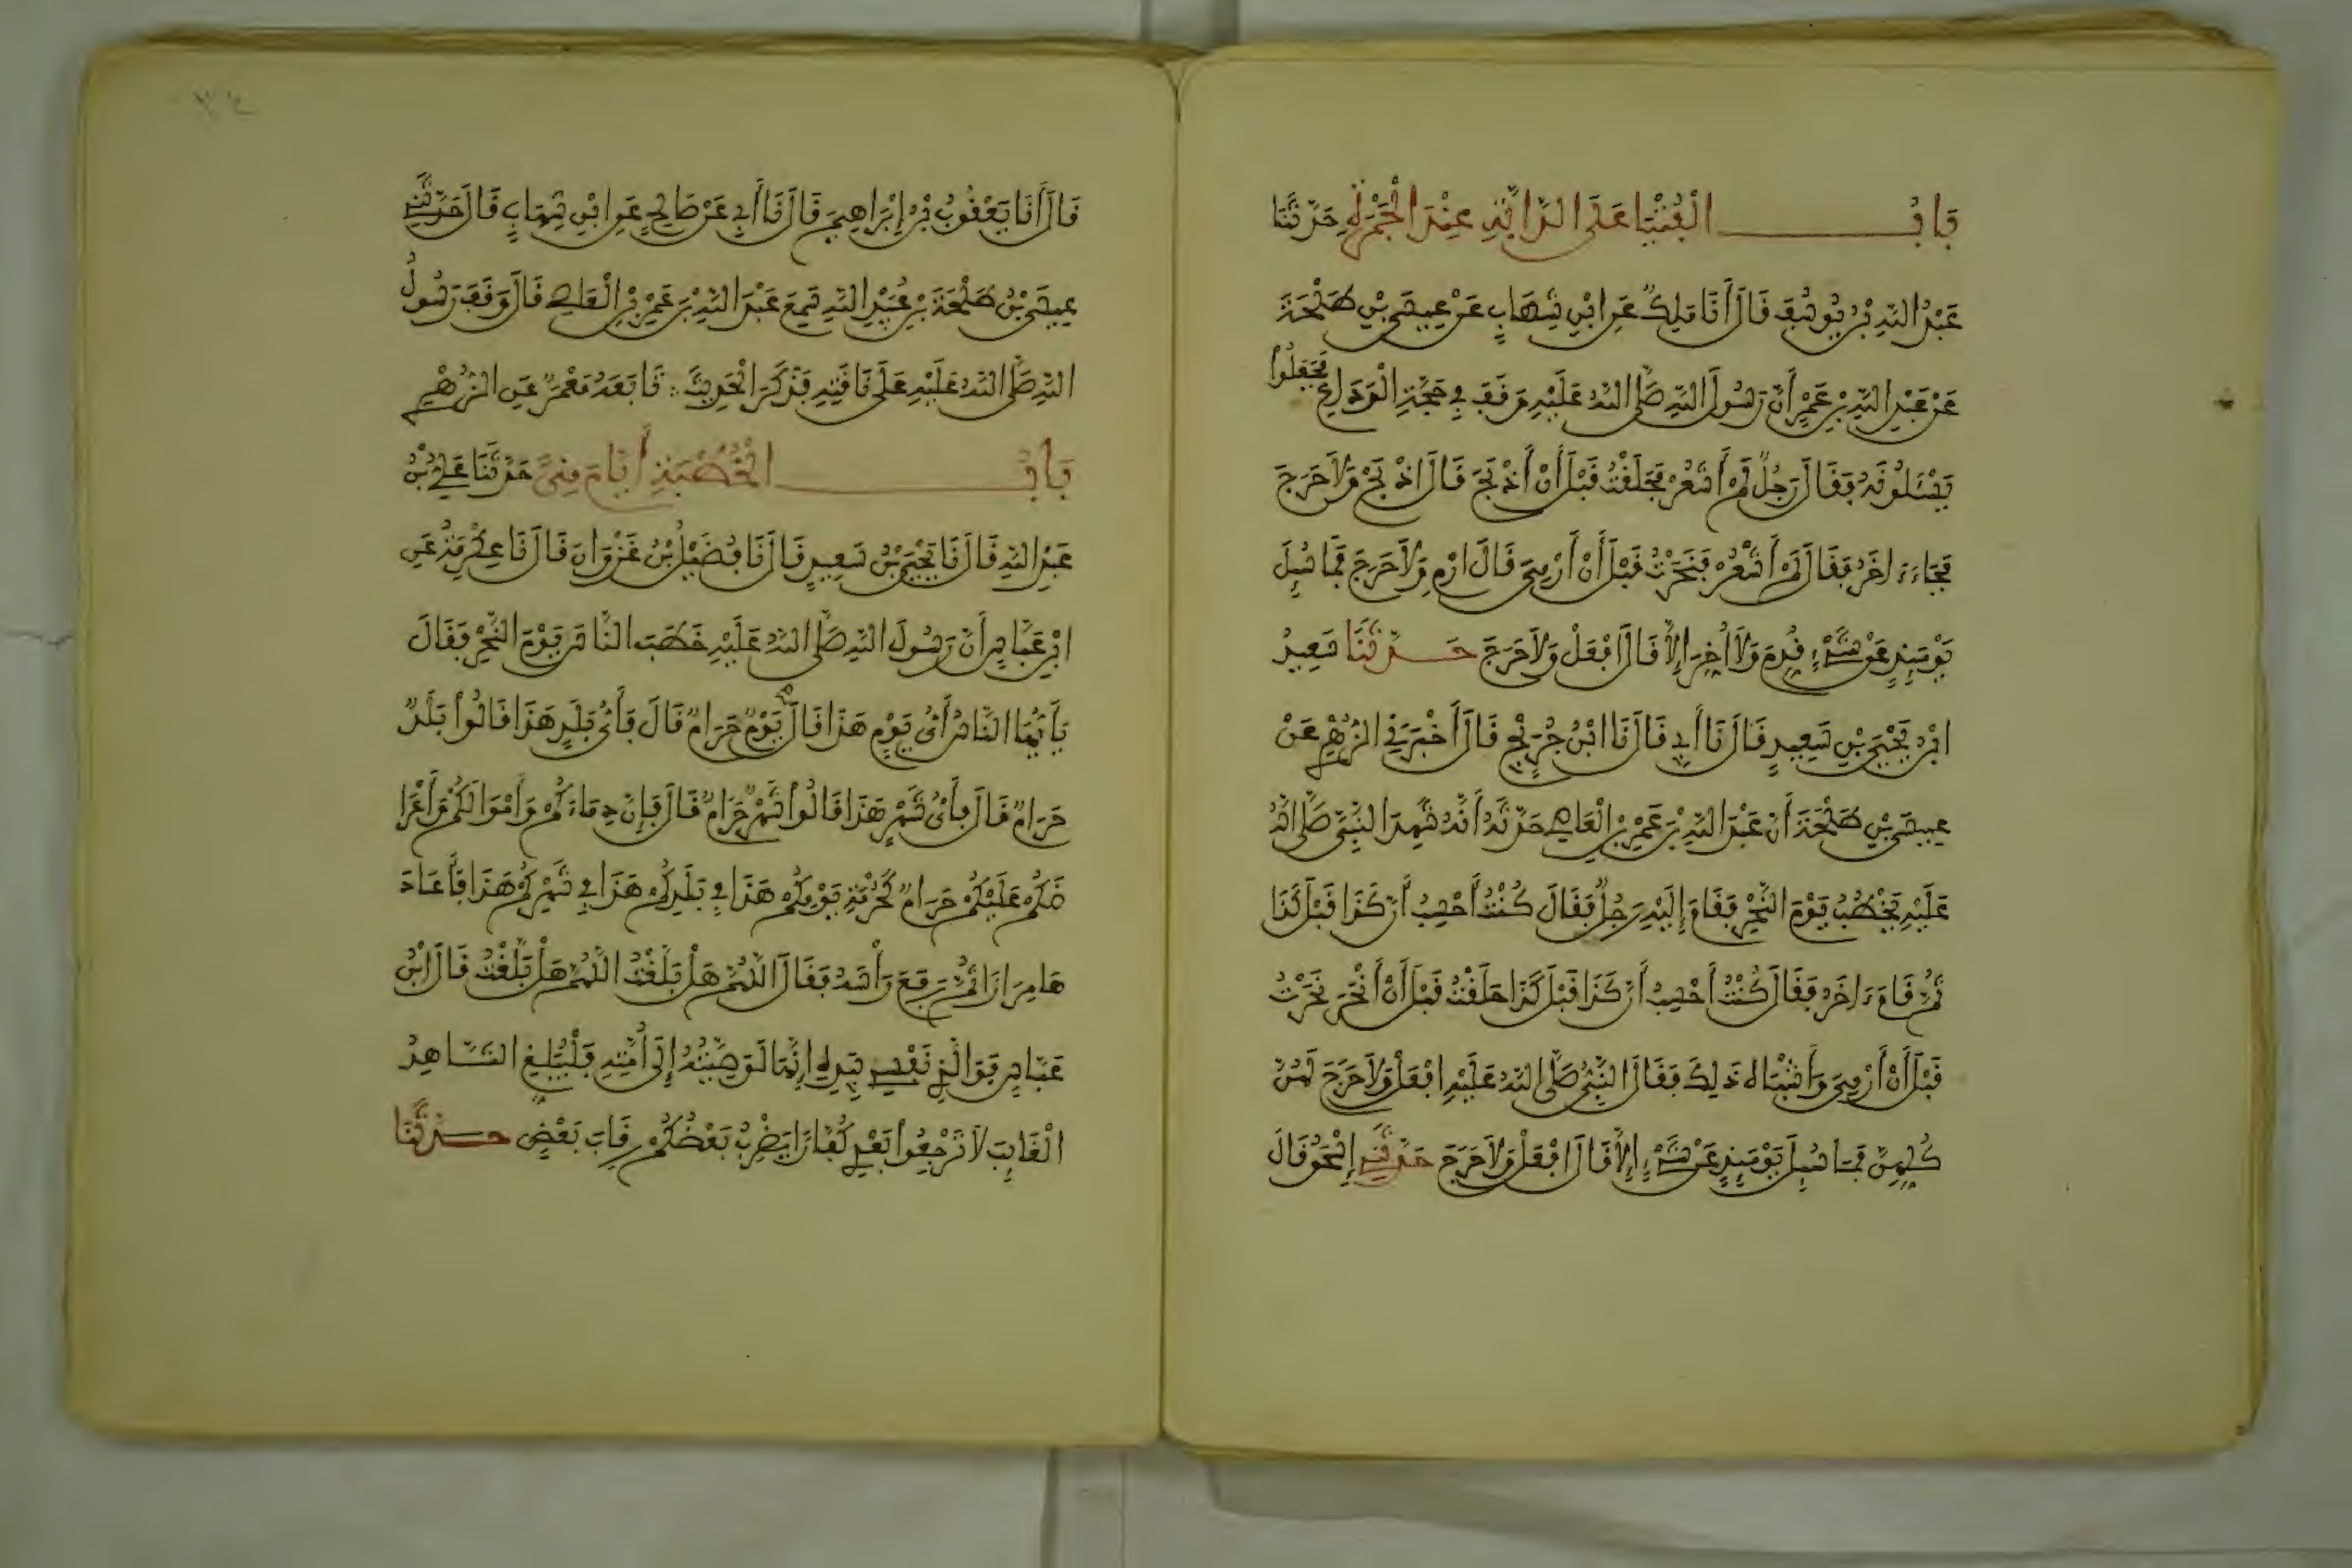 بَابُ الْفُتْيَا عَلَى الدَّابَّةِ عِنْدَ الْجَمْرَةِ حَدَّثَنَا
عَبْدُ اللَّهِ بْنُ يُوسُفَ قَالَ أَنَا مَلِكٌ عَنِ ابْنِ شِهَابٍ عَنْ عِيسَى بْنِ طَلْحَةَ
عَنْ عَبْدِ اللَّهِ بْنِ عَمْرٍ أَنَّ رَسُولَ اللَّهِ صَلَّى اللَّهُ عَلَيْهِ وَقَفَ فِي حَجَّةِ الْوَدَاعِ فَجَعَلُوا
يَسْئَلُونَهُ فَقَالَ رَجُلٌ لَمْ أَشْعُرْ فَحَلَقْتُ قَبْلَ أَنْ أَذْبَحَ قَالَ اذْبَحْ وَلَا حَرَجَ
فَجَاءَ ءَاخَرُ فَقَالَ لَمْ أَشْعُرْ فَنَحَرْتُ قَبْلَ أَنْ أَرْمِيَ قَالَ ارْمِ وَلَا حَرَجَ فَمَا سُئِلَ
يَوْمَئِذٍ عَنْ شَيْءٍ قُدِّمَ وَلَا أُخِّرَ إِلَّا قَالَ افْعَلْ وَلَا حَرَجَ حَدَّثَنَا سَعِيدُ
ابْنُ يَحْيَى بْنِ سَعِيدٍ قَالَ نَا أَبِي قَالَ نَا ابْنُ جُرَيْجٍ قَالَ أَخْبَرَنِي الزُّهْرِيُّ عَنْ
عِيسَى بْنِ طَلْحَةَ أَنَّ عَبْدَ اللَّهِ بْنَ عَمْرِ بْنِ الْعَاصِي حَدَّثَهُ أَنَّهُ شَهِدَ النَّبِيَّ صَلَّى اللَّهُ
عَلَيْهِ يَخْطُبُ يَوْمَ النَّحْرِ فَقَامَ إِلَيْهِ رَجُلٌ فَقَالَ كُنْتُ أَحْسِبُ أَنَّ كَذَا قَبْلَ كَذَا
ثُمَّ قَامَ ءَاخَرُ فَقَالَ كُنْتُ أَحْسِبُ أَنَّ كَذَا قَبْلَ كَذَا حَلَقْتُ قَبْلَ أَنْ أَنْحَرَ نَحَرْتُ
قَبْلَ أَنْ أَرْمِيَ وَأَشْبَاهَ ذَلِكَ فَقَالَ النَّبِيُّ صَلَّى اللَّهُ عَلَيْهِ افْعَلْ وَلَا حَرَجَ لَهُنَّ
كُلِّهِنَّ فَمَا سُئِلَ يَوْمَئِذٍ عَنْ شَيْءٍ إِلَّا قَالَ افْعَلْ وَلَا حَرَجَ حَدَّثَنِي إِسْحَقُ قَالَ
قَالَ أَنَا يَعْقُوبُ بْنُ إِبْرَاهِيمَ قَالَ نَا أَبِي عَنْ صَالِحٍ عَنِ ابْنِ شِهَابٍ قَالَ حَدَّثَنِي
عِيسَى بْنُ طَلْحَةَ بْنِ عُبَيْدِ اللَّهِ سَمِعَ عَبْدَ اللَّهِ بْنَ عَمْرِ بْنِ الْعَاصِي قَالَ وَقَفَ رَسُولُ
اللَّهِ صَلَّى اللَّهُ عَلَيْهِ عَلَى نَاقَتِهِ فَذَكَرَ الْحَدِيثَ تَابَعَهُ مَعْمَرٌ عَنِ الزُّهْرِيِّ
بَابُ الْخُطْبَةِ أَيَّامَ مِنًى حَدَّثَنَا عَلِيُّ بْنُ
عَبْدِ اللَّهِ قَالَ نَا يَحْيَى بْنُ سَعِيدٍ قَالَ نَا فُضَيْلُ بْنُ غَزْوَانَ قَالَ نَا عِكْرِمَةُ عَنِ
ابْنِ عَبَّاسٍ أَنَّ رَسُولَ اللَّهِ صَلَّى اللَّهُ عَلَيْهِ خَطَبَ النَّاسَ يَوْمَ النَّحْرِ فَقَالَ
يَأَيُّهَا النَّاسُ أَيُّ يَوْمٍ هَذَا قَالَ يَوْمٌ حَرَامٌ قَالَ فَأَيُّ بَلَدٍ هَذَا قَالُوا بَلَدٌ
حَرَامٌ قَالَ فَأَيُّ شَهْرٍ هَذَا قَالُوا شَهْرٌ حَرَامٌ قَالَ فَإِنَّ دِمَاءَكُمْ وَأَمْوَالَكُمْ وَأَعْرَا
ضَكُمْ عَلَيْكُمْ حَرَامٌ كَحُرْمَةِ يَوْمِكُمْ هَذَا فِي بَلَدِكُمْ هَذَا فِي شَهْرِكُمْ هَذَا فَأَعَادَ
هَا مِرَارًا ثُمَّ رَفَعَ رَأْسَهُ فَقَالَ اللَّهُمَّ هَلْ بَلَّغْتُ اللَّهُمَّ هَلْ بَلَّغْتُ قَالَ ابْنُ
عَبَّاسٍ فَوَالَّذِي نَفْسِي بِيَدِهِ إِنَّهَا لَوَصِيَّتُهُ إِلَى أُمَّتِهِ فَلْيُبَلِّغِ الشَّاهِدُ
الْغَائِبَ لَا تَرْجِعُوا بَعْدِي كُفَّارًا يَضْرِبُ بَعْضُكُمْ رِقَابَ بَعْضٍ حَدَّثَنَا